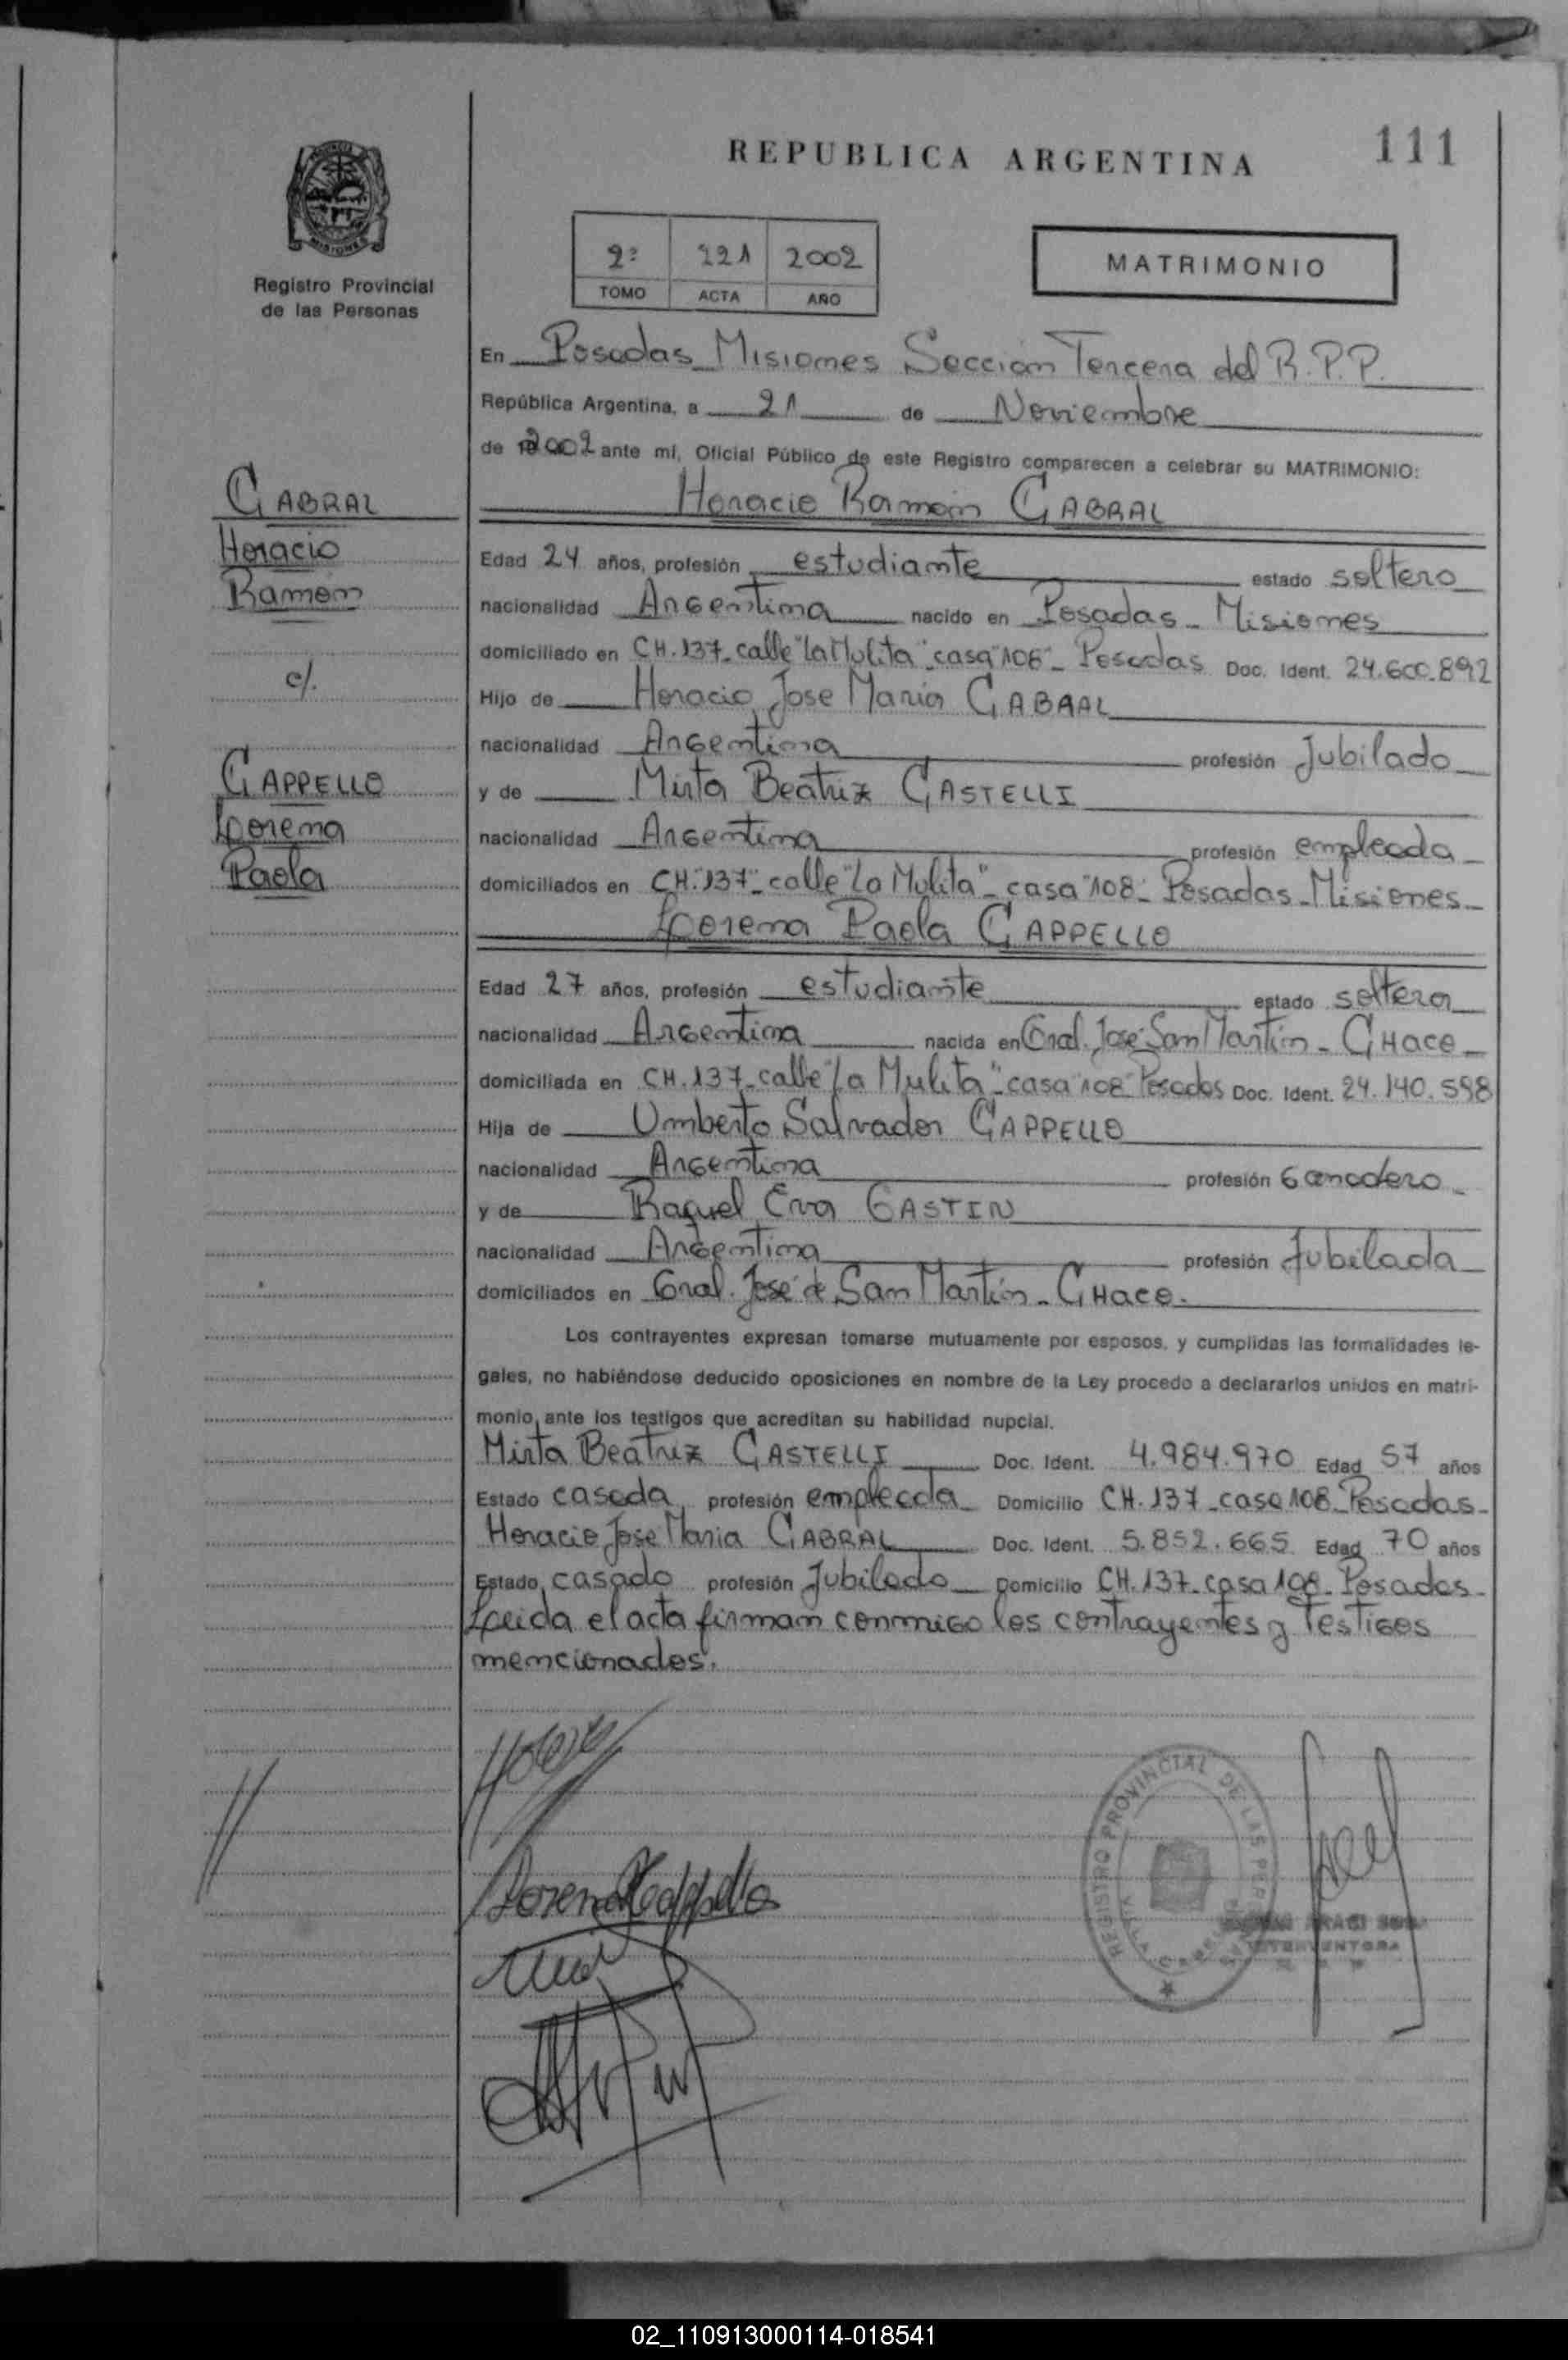 REPUBLICA ARGENTINA
111
MISIONES
Registro Provincial
de las Personas
2º 221 2002
TOMO ACTA AÑO
MATRIMONIO
En Posadas Misiones Sección Tercera del R.P.P.
República Argentina, a 21 de Noviembre
de 2002 ante mí, Oficial Público de este Registro comparecen a celebrar su MATRIMONIO:
CABRAL
Horacio
Ramón
c/.
CAPPELLO
Lorena
Paola
Horacio Ramón CABRAL
Edad 24 años, profesión estudiante estado soltero
nacionalidad Argentina nacido en Posadas - Misiones
domiciliado en CH.137-calle "La Mulita" casa "108"- Posadas Doc. Ident. 24.600.892
Hijo de Horacio Jose Maria CABRAL
nacionalidad Argentina profesión Jubilado
y de Mirta Beatriz CASTELLI
nacionalidad Argentina profesión empleada
domiciliados en CH."137"-calle "La Mulita"-casa "108"- Posadas-Misiones-
Lorena Paola CAPPELLO
Edad 27 años, profesión estudiante estado soltera
nacionalidad Argentina nacida en Gral. José San Martín - CHaco-
domiciliada en CH.137-calle "La Mulita"-casa "108" Posadas Doc. Ident. 24.140.598
Hija de Umberto Salvador CAPPELLO
nacionalidad Argentina profesión Ganadero-
y de Raquel Eva GASTIN
nacionalidad Argentina profesión Jubilada
domiciliados en Gral. José de San Martín - CHaco.
Los contrayentes expresan tomarse mutuamente por esposos, y cumplidas las formalidades le-
gales, no habiéndose deducido oposiciones en nombre de la Ley procedo a declararlos unidos en matri-
monio, ante los testigos que acreditan su habilidad nupcial.
Mirta Beatriz CASTELLI Doc. Ident. 4.984.970 Edad 57 años
Estado casada profesión empleada Domicilio CH.137-casa 108-Posadas-
Horacio Jose Maria CABRAL Doc. Ident. 5.852.665 Edad 70 años
Estado casado profesión Jubilado Domicilio CH.137-casa 108-Posadas-
Leida el acta firman conmigo los contrayentes y Testigos
mencionados.
REGISTRO PROVINCIAL DE LAS PER
Lorena Cappello
INTERVENTORA
02_110913000114-018541